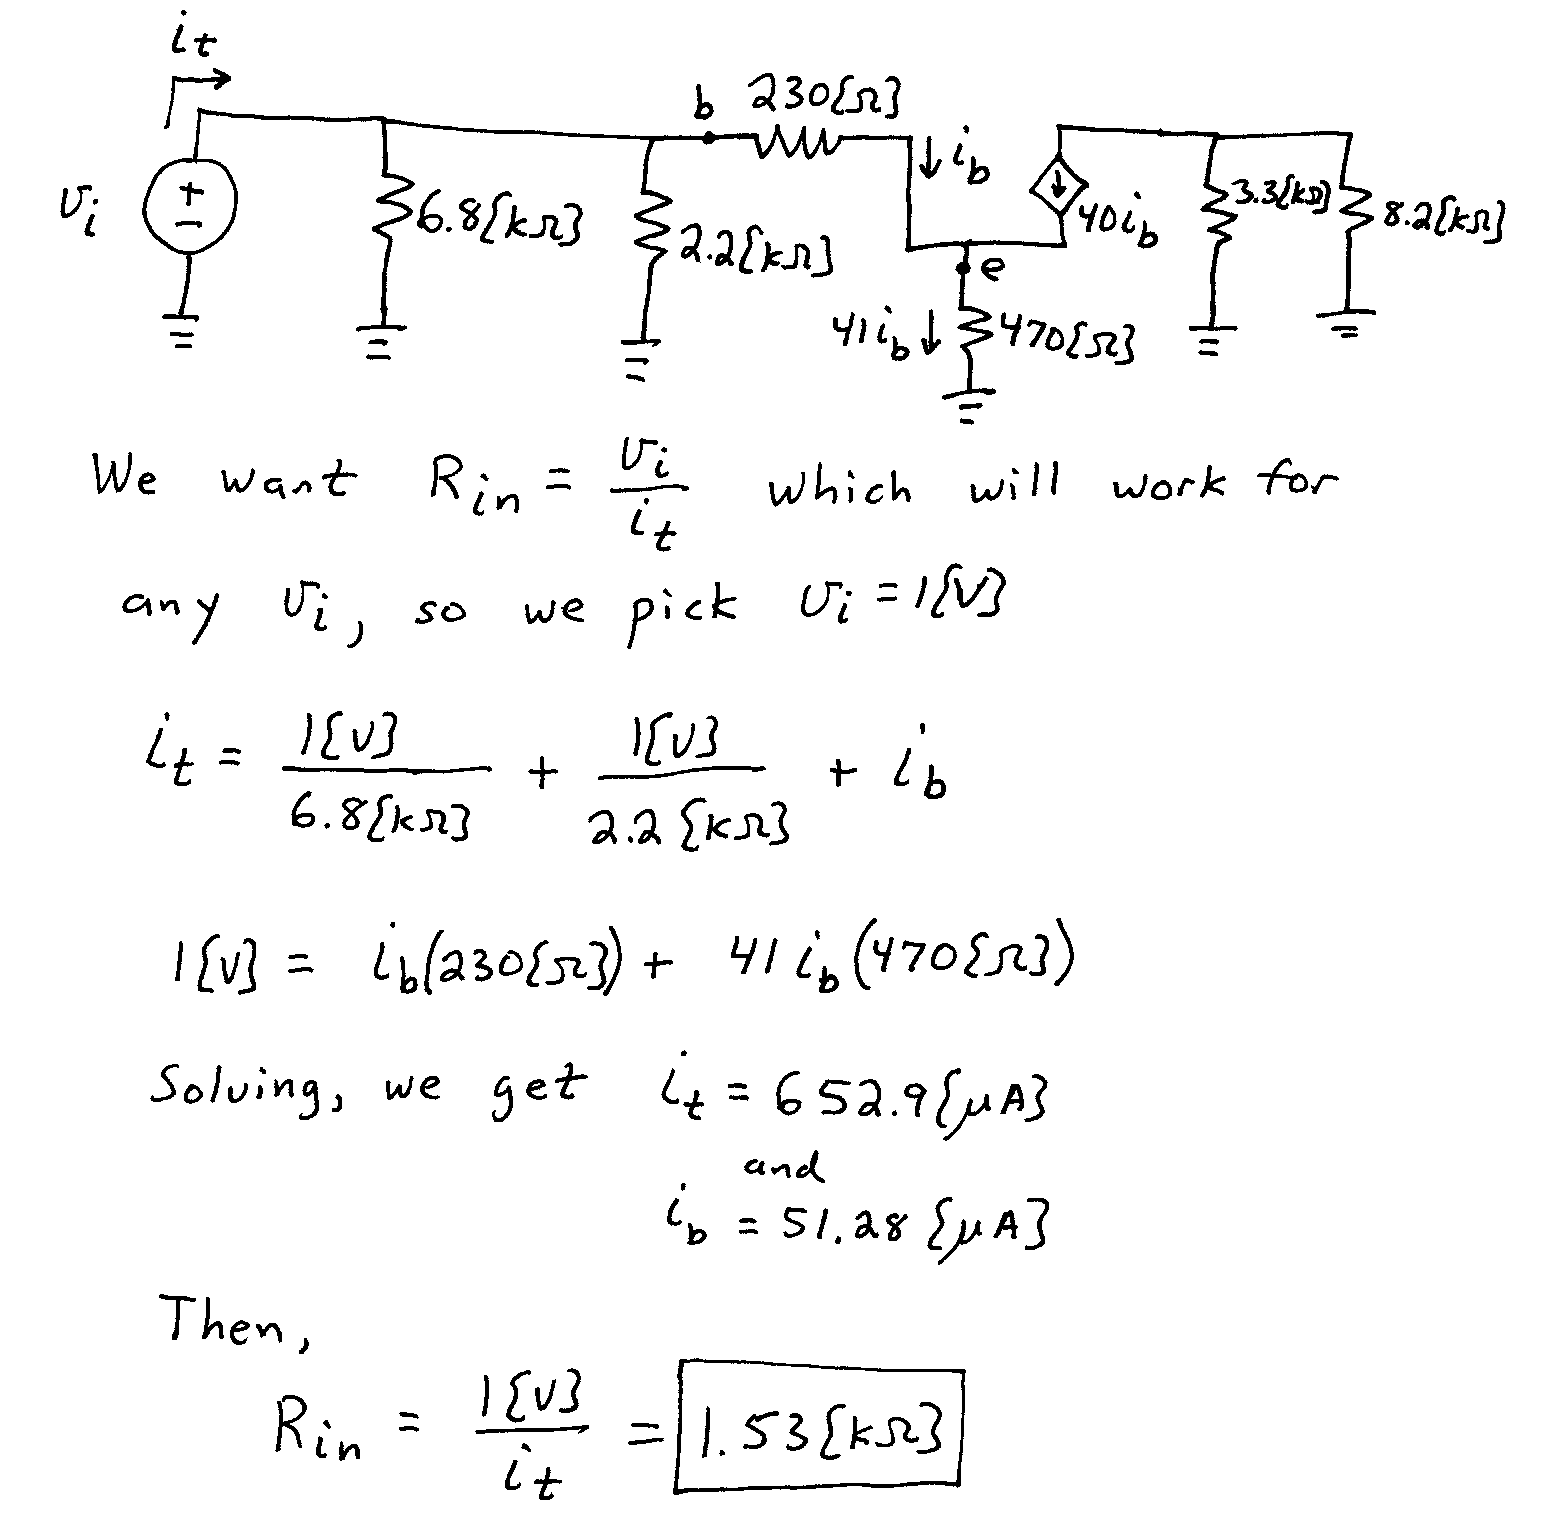 i_t
b 230{Ω}
v_i + − 6.8{kΩ} 2.2{kΩ} i_b 40i_b 3.3{kΩ} 8.2{kΩ}
e
41i_b 470{Ω}
We want R_in = v_i / i_t which will work for
any v_i, so we pick v_i = 1{V}
i_t = 1{V} / 6.8{kΩ} + 1{V} / 2.2{kΩ} + i_b
1{V} = i_b(230{Ω}) + 41 i_b(470{Ω})
Solving, we get i_t = 652.9{μA}
and
i_b = 51.28{μA}
Then,
R_in = 1{V} / i_t = 1.53{kΩ}